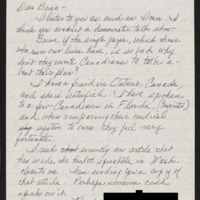 Dear Bran -
I listen to you as much as I can. I
think you conduct a democratic talk show.
Even, if the single payer, which those
who run our lives have, is so bad why
don't they invite Canadians to talk a-
bout their plan?
I have a friend in Ontario, Canada
and she is satisfied. I have spoken
to a few Canadians in Florida (tourists)
and, when comparing their medical
system to ours they feel very
fortunate.
I read recently an article that
has made the
clear to me. Am sending you a copy of
that article. Perhaps someone could
speak on it.